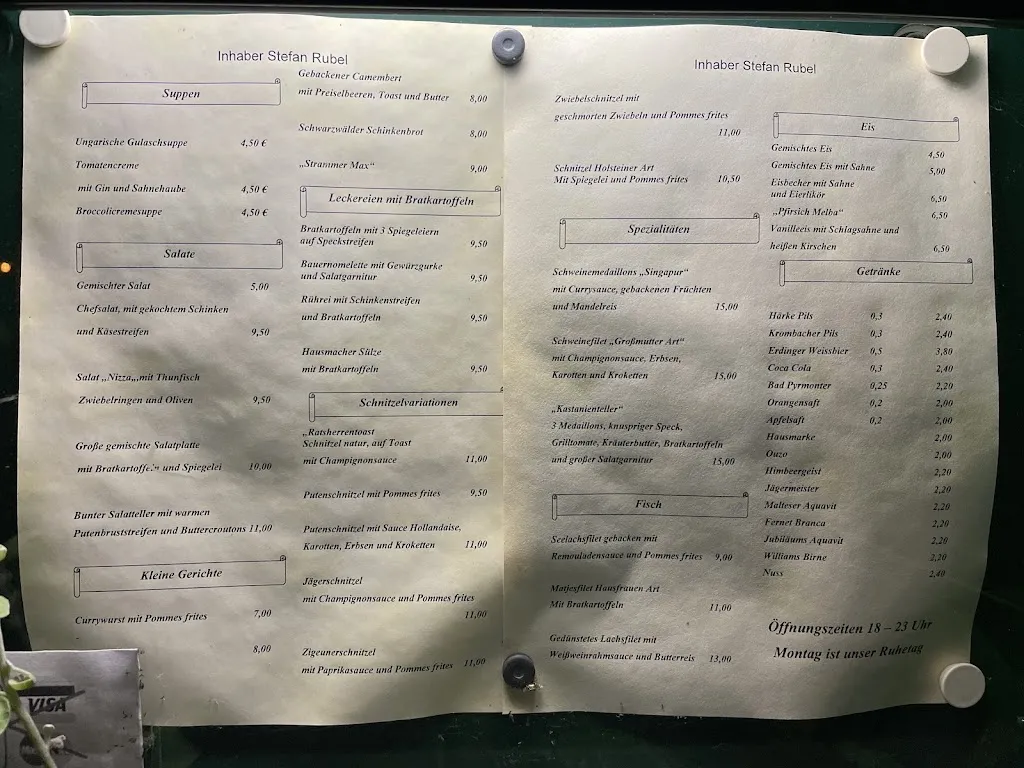 Inhaber Stefan Rubel
Suppen
Ungarische Gulaschsuppe 4,50 €
Tomatencreme
mit Gin und Sahnehaube 4,50 €
Broccolicremesuppe 4,50 €
Salate
Gemischter Salat 5,00
Chefsalat, mit gekochtem Schinken
und Käsestreifen 9,50
Salat „Nizza„,mit Thunfisch
Zwiebelringen und Oliven 9,50
Große gemischte Salatplatte
mit Bratkartoffeln und Spiegelei 10,00
Bunter Salatteller mit warmen
Putenbruststreifen und Buttercroutons 11,00
Kleine Gerichte
Currywurst mit Pommes frites 7,00
8,00
Gebackener Camembert
mit Preiselbeeren, Toast und Butter 8,00
Schwarzwälder Schinkenbrot 8,00
„Strammer Max" 9,00
Leckereien mit Bratkartoffeln
Bratkartoffeln mit 3 Spiegeleiern
auf Speckstreifen 9,50
Bauernomelette mit Gewürzgurke
und Salatgarnitur 9,50
Rührei mit Schinkenstreifen
und Bratkartoffeln 9,50
Hausmacher Sülze
mit Bratkartoffeln 9,50
Schnitzelvariationen
„Ratsherrentoast
Schnitzel natur, auf Toast
mit Champignonsauce 11,00
Putenschnitzel mit Pommes frites 9,50
Putenschnitzel mit Sauce Hollandaise,
Karotten, Erbsen und Kroketten 11,00
Jägerschnitzel
mit Champignonsauce und Pommes frites
11,00
Zigeunerschnitzel
mit Paprikasauce und Pommes frites 11,00
Inhaber Stefan Rubel
Zwiebelschnitzel mit
geschmorten Zwiebeln und Pommes frites
11,00
Schnitzel Holsteiner Art
Mit Spiegelei und Pommes frites 10,50
Spezialitäten
Schweinemedaillons „Singapur"
mit Currysauce, gebackenen Früchten
und Mandelreis 15,00
Schweinefilet „Großmutter Art"
mit Champignonsauce, Erbsen,
Karotten und Kroketten 15,00
„Kastanienteller"
3 Medaillons, knuspriger Speck,
Grilltomate, Kräuterbutter, Bratkartoffeln
und großer Salatgarnitur 15,00
Fisch
Seelachsfilet gebacken mit
Remouladensauce und Pommes frites 9,00
Matjesfilet Hausfrauen Art
Mit Bratkartoffeln 11,00
Gedünstetes Lachsfilet mit
Weißweinrahmsauce und Butterreis 13,00
Eis
Gemischtes Eis 4,50
Gemischtes Eis mit Sahne 5,00
Eisbecher mit Sahne
und Eierlikör 6,50
„Pfirsich Melba" 6,50
Vanilleeis mit Schlagsahne und
heißen Kirschen 6,50
Getränke
Härke Pils 0,3 2,40
Krombacher Pils 0,3 2,40
Erdinger Weissbier 0,5 3,80
Coca Cola 0,3 2,40
Bad Pyrmonter 0,25 2,20
Orangensaft 0,2 2,00
Apfelsaft 0,2 2,00
Hausmarke 2,00
Ouzo 2,00
Himbeergeist 2,20
Jägermeister 2,20
Malteser Aquavit 2,20
Fernet Branca 2,20
Jubiläums Aquavit 2,20
Williams Birne 2,20
Nuss 2,40
Öffnungszeiten 18 – 23 Uhr
Montag ist unser Ruhetag
VISA